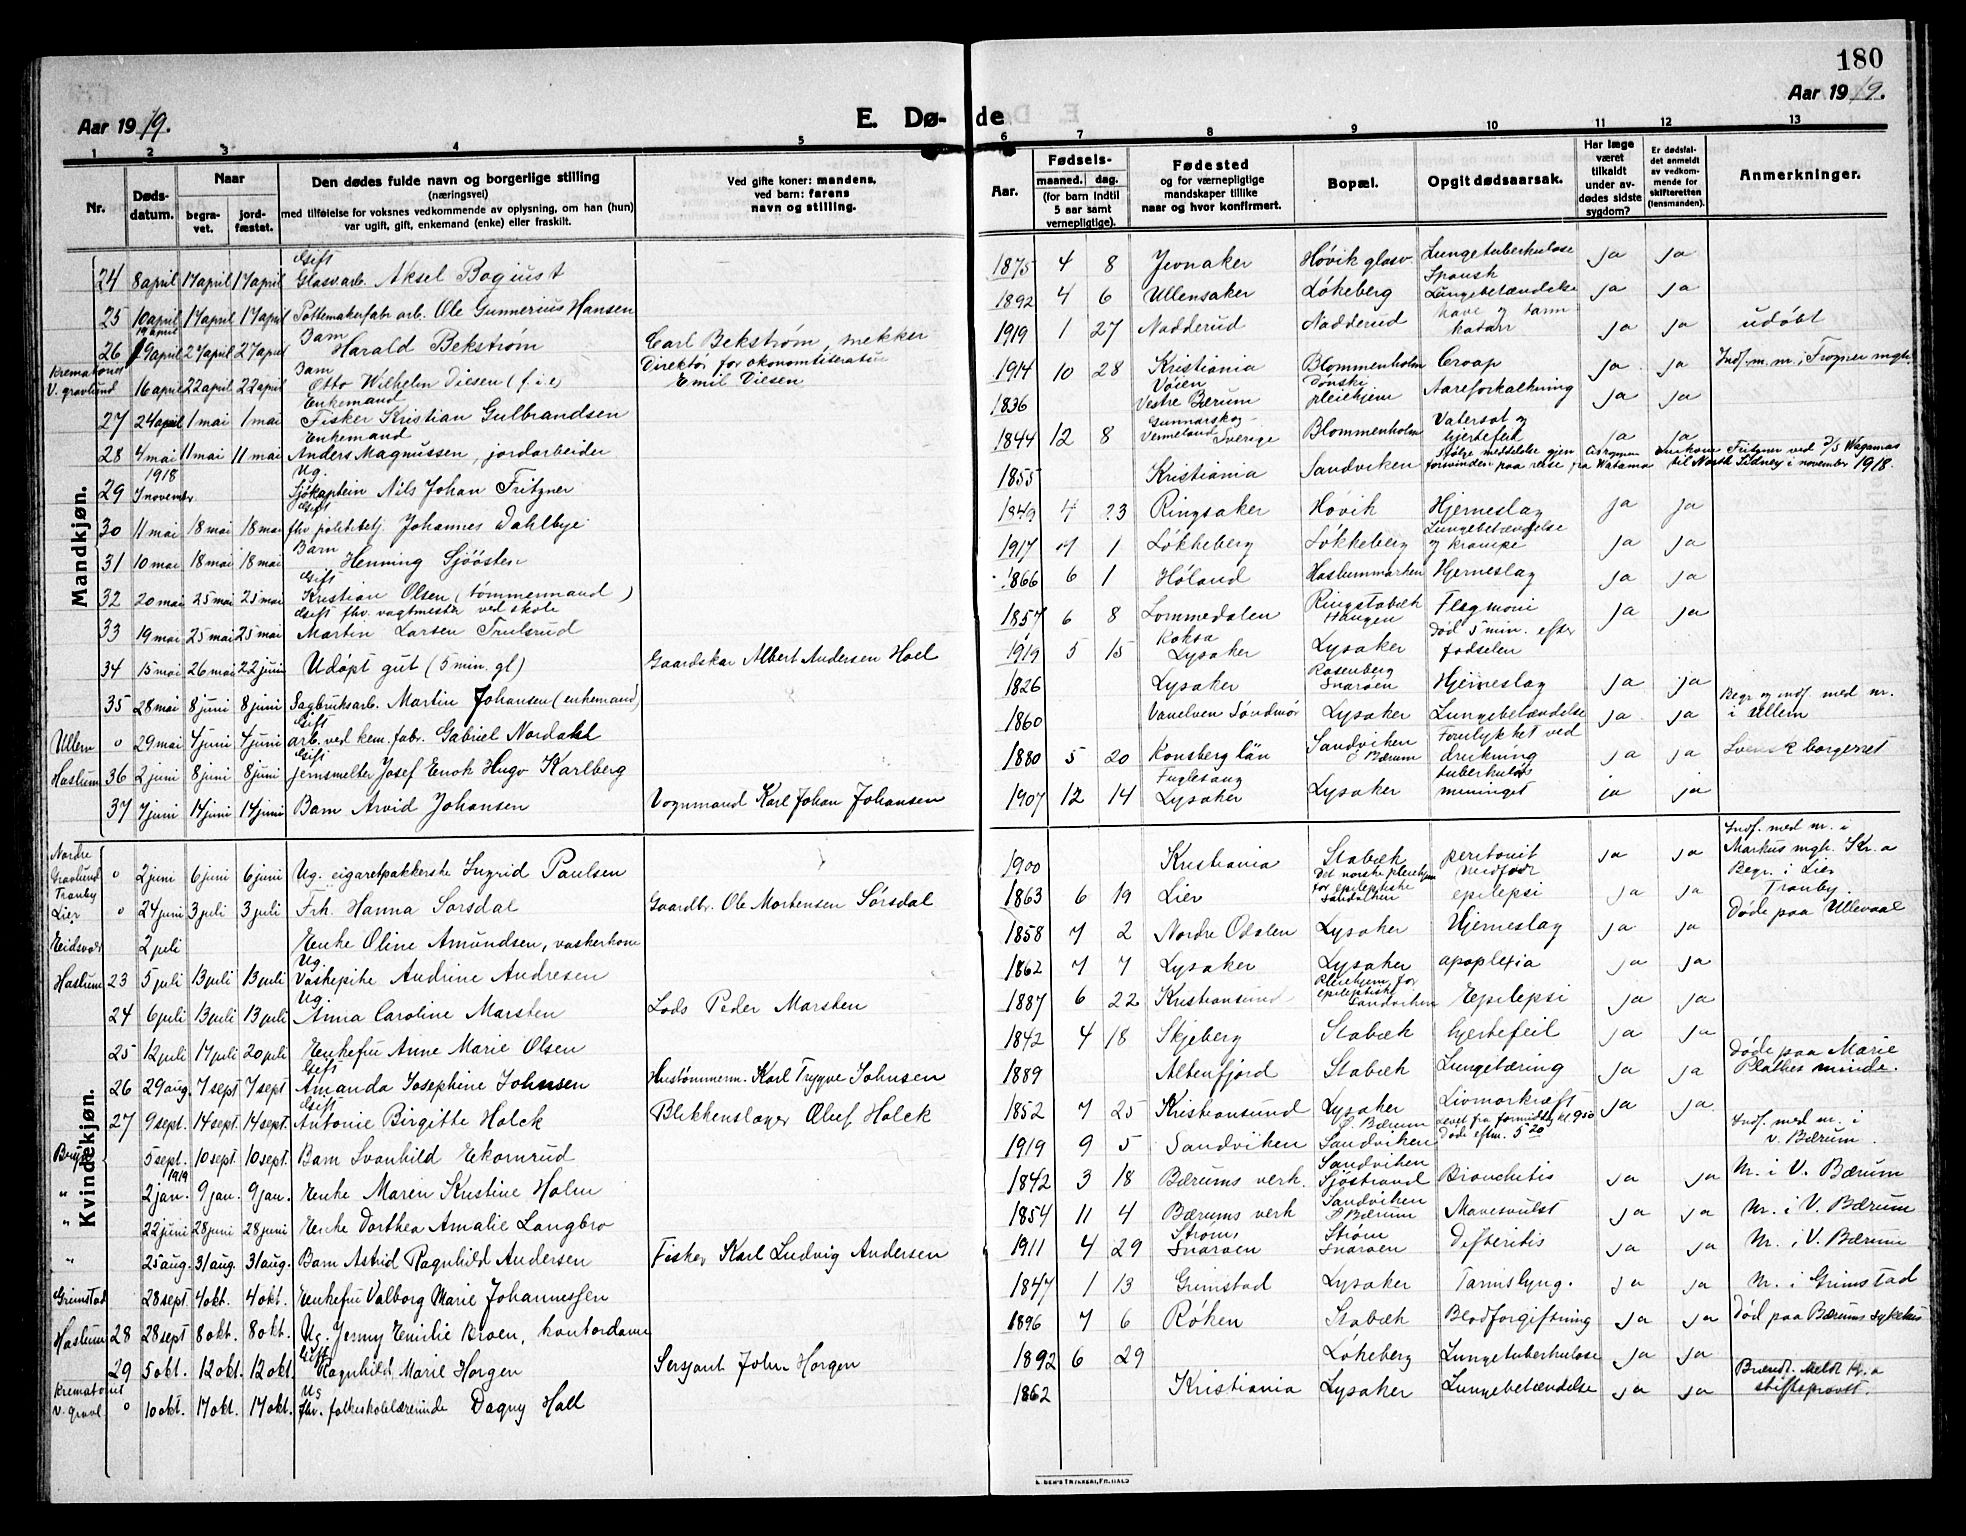 180
Aar 1919.
E. Dø-
de
Aar 1919.
1 2 3 4 5 6 7 8 9 10 11 12 13
Nr.
Døds-datum.
Naar
begra-vet.
jord-fæstet.
Den dødes fulde navn og borgerlige stilling
(næringsvei)
med tilføielse for voksnes vedkommende av oplysning, om han (hun)
var ugift, gift, enkemand (enke) eller fraskilt.
Ved gifte koner: mandens,
ved barn: farens
navn og stilling.
Aar.
Fødsels-
maaned. dag.
(for barn indtil
5 aar samt
vernepligtige).
Fødested
og for værnepligtige
mandskaper tillike
naar og hvor konfirmert.
Bopæl.
Opgit dødsaarsak.
Har læge
været
tilkaldt
under av-
dødes sidste
sygdom?
Er dødsfal-
det anmeldt
av vedkom-
mende for
skifteretten
(lensmanden).
Anmerkninger.
Mandkjøn.
24 8 april 17 april 17 april Gift Glasv.arb. Aksel Bogiust 1875 4 8 Jevnaker Høvik glasv. Lungetuberkulose ja ja
25 10 april 17 april 17 april Pottemakerfabr. arb. Ole Gunnerius Hansen 1892 4 6 Ullensaker Løkeberg Spansk Lungebetændelse ja ja
26 19 april 27 april 27 april Barn Harald Bekstrøm Carl Bekstrøm, snekker 1919 1 27 Nadderud Nadderud katarr ja ja udøbt
Krematoriet V. gravlund 16 april 22 april 22 april Barn Otto Wilhelm Diesen (f.i.e) Direktør for økonomliteratur Emil Diesen 1914 10 28 Kristiania Blommenholm Croup ja ja Indf. m. nr. i Frogner mgh.
27 24 april 1 mai 1 mai Enkemand Fisker Kristian Gulbrandsen 1836 Vøien Vestre Bærum Dønski pleiehjem Aareforkalkning ja ja
28 4 mai 11 mai 11 mai Enkemand Anders Magnussen, jordarbeider 1844 12 8 Gunnarskog Vermeland Sverige Blommenholm Vatersot og hjertefeil ja ja
29 1918 november Ug. Sjøkaptein Nils Johan Fritzner 1855 Kristiania Sandviken forsvinden paa reise fra Watama til North Sidney i november 1918.
30 11 mai 18 mai 18 mai Gift fhv. politibetj. Johannes Dahlbye 1849 4 23 Ringsaker Høvik Hjerneslag ja ja
31 10 mai 18 mai 18 mai Barn Henning Sjøösten 1917 1 Løkkeberg Løkkeberg Lungebetændelse og krampe ja ja
32 20 mai 25 mai 25 mai Gift Kristian Olsen (tømmermand) 1866 6 1 Høland Haslummarken Hjerneslag ja ja
33 19 mai 25 mai 25 mai Gift fhv. vagtmester ved skole Martin Larsen Trulsrud 1857 6 8 Lommedalen Ringstabæk Haugen Flegmoni ja ja
34 15 mai 26 mai 22 juni Udøpt gut (5 min. gl) Gaardskar Albert Andersen Hoel 1919 5 15 Koksa Lysaker Lysaker død 5 min. efter fødselen
35 28 mai 8 juni 8 juni Sagbruksarb. Martin Johansen (enkemand) 1826 Lysaker Rosenberg Snarøen Hjerneslag ja ja
Ullern o 29 mai 4 juni 4 juni Gift arb. ved kem. fabr. Gabriel Nordahl 1860 Vanelven Søndmør Lysaker Lungebetændelse ja ja Begr. og indf. med nr. i Ullern
Haslum 36 2 juni 8 juni 8 juni Gift jernsmelter Josef Enok Hugo Karlberg 1880 5 20 Konsberg län Sandviken Ø Bærum Forulykket ved drukning ja ja Svensk borgerret
37 7 juni 14 juni 14 juni Barn Arvid Johansen Vognmand Karl Johan Johansen 1907 12 14 Fuglesang Lysaker Lysaker tuberkuløs meninget ja ja
Kvindekjøn.
Nordre Gravlund o 2 juni 6 juni 6 juni Ug. cigaretpakkerske Ingrid Paulsen 1900 Kristiania Stabæk peritonit ja ja Indf. med nr. i Markus mgh. Kr.a
Tranby Lier o 24 juni 3 juli 3 juli Frk. Hanna Sørsdal Gaardbr. Ole Mortensen Sørsdal 1863 6 19 Lier Det norske pleiehjem for epileptiske Sandviken medfødt epilepsi ja ja Begr. i Lier Tranby.
Eidsvold 2 juli Enke Oline Amundsen, vaskerkone 1858 7 2 Nordre Odalen Lysaker Hjerneslag ja ja Døde paa Ullevaal
Haslum 23 5 juli 13 juli 13 juli Ug. Vaskepike Andrine Andresen 1862 7 7 Lysaker Lysaker apoplexia ja ja
24 6 juli 13 juli 13 juli Ug. Anna Caroline Marsten Lods Peder Marsten 1887 6 22 Kristiansund Pleiehjem for epileptiske Sandviken Epilepsi ja ja
25 12 juli 17 juli 20 juli Enkefru Anne Marie Olsen 1842 4 18 Skjeberg Stabæk hjertefeil ja ja
26 29 aug. 7 sept 7 sept Gift Amanda Josephine Johnsen Hustømmerm. Karl Trygve Johnsen 1889 Altenfjord Stabæk Lungetæring ja ja Døde paa Marie Plathes minde.
27 9 sept. 14 sept. 14 sept. Gift Antonie Birgitte Holck Blikkenslager Oluf Holck 1852 7 25 Kristiansund Lysaker Livmorkræft ja ja
5 sept. 10 sept. 10 sept. Barn Svanhild Ekornrud 1919 9 5 Sandviken Ø. Bærum Sandviken Levet fra formiddag kl. 9 50 Døde eftm. 5 20 Indf. med nr. i V. Bærum.
" 1919 2 jan. 9 jan. 9 jan. Enke Maren Kristine Holm 1842 3 18 Bærums verk. Sandviken Sjøstrand Bronchitis ja ja Nr. i V. Bærum
" 22 juni 28 juni 28 juni Enke Dorthea Amalie Langbro 1854 11 4 Bærums verk Sandviken Ø Bærum Mavesvulst ja ja Nr. i V. Bærum
" 25 aug. 31 aug. 31 aug. Barn Astrid Ragnhild Andersen Fisker Karl Ludvig Andersen 1911 4 29 Strøm, Snarøen Strøm Snarøen Difteritis ja ja Nr. i V. Bærum
Grimstad 28 sept. 4 okt. 4 okt. Enkefru Valborg Marie Johannessen 1847 1 13 Grimstad Lysaker Tarmslyng. ja ja Nr. i Grimstad
Haslum 28 28 sept 8 okt. 8 okt. Ug. Jenny Emilie Broen, kontordame 1896 7 6 Røken Stabæk Blodforgiftning ja ja Død paa Bærums sykehus
29 5 okt. 12 okt. 12 okt. Gift Ragnhild Marie Horgen Sersjant John Horgen 1892 6 29 Løkeberg Lungetuberkulose ja ja
Krematoriet V. gravl o 10 okt. 17 okt. 17 okt. Ug fhv. folkeskolelærerinde Dagny Hall 1862 Kristiania Lysaker Lungebetændelse ja ja Brændt. Meldt Kr.a stiftsprovst.